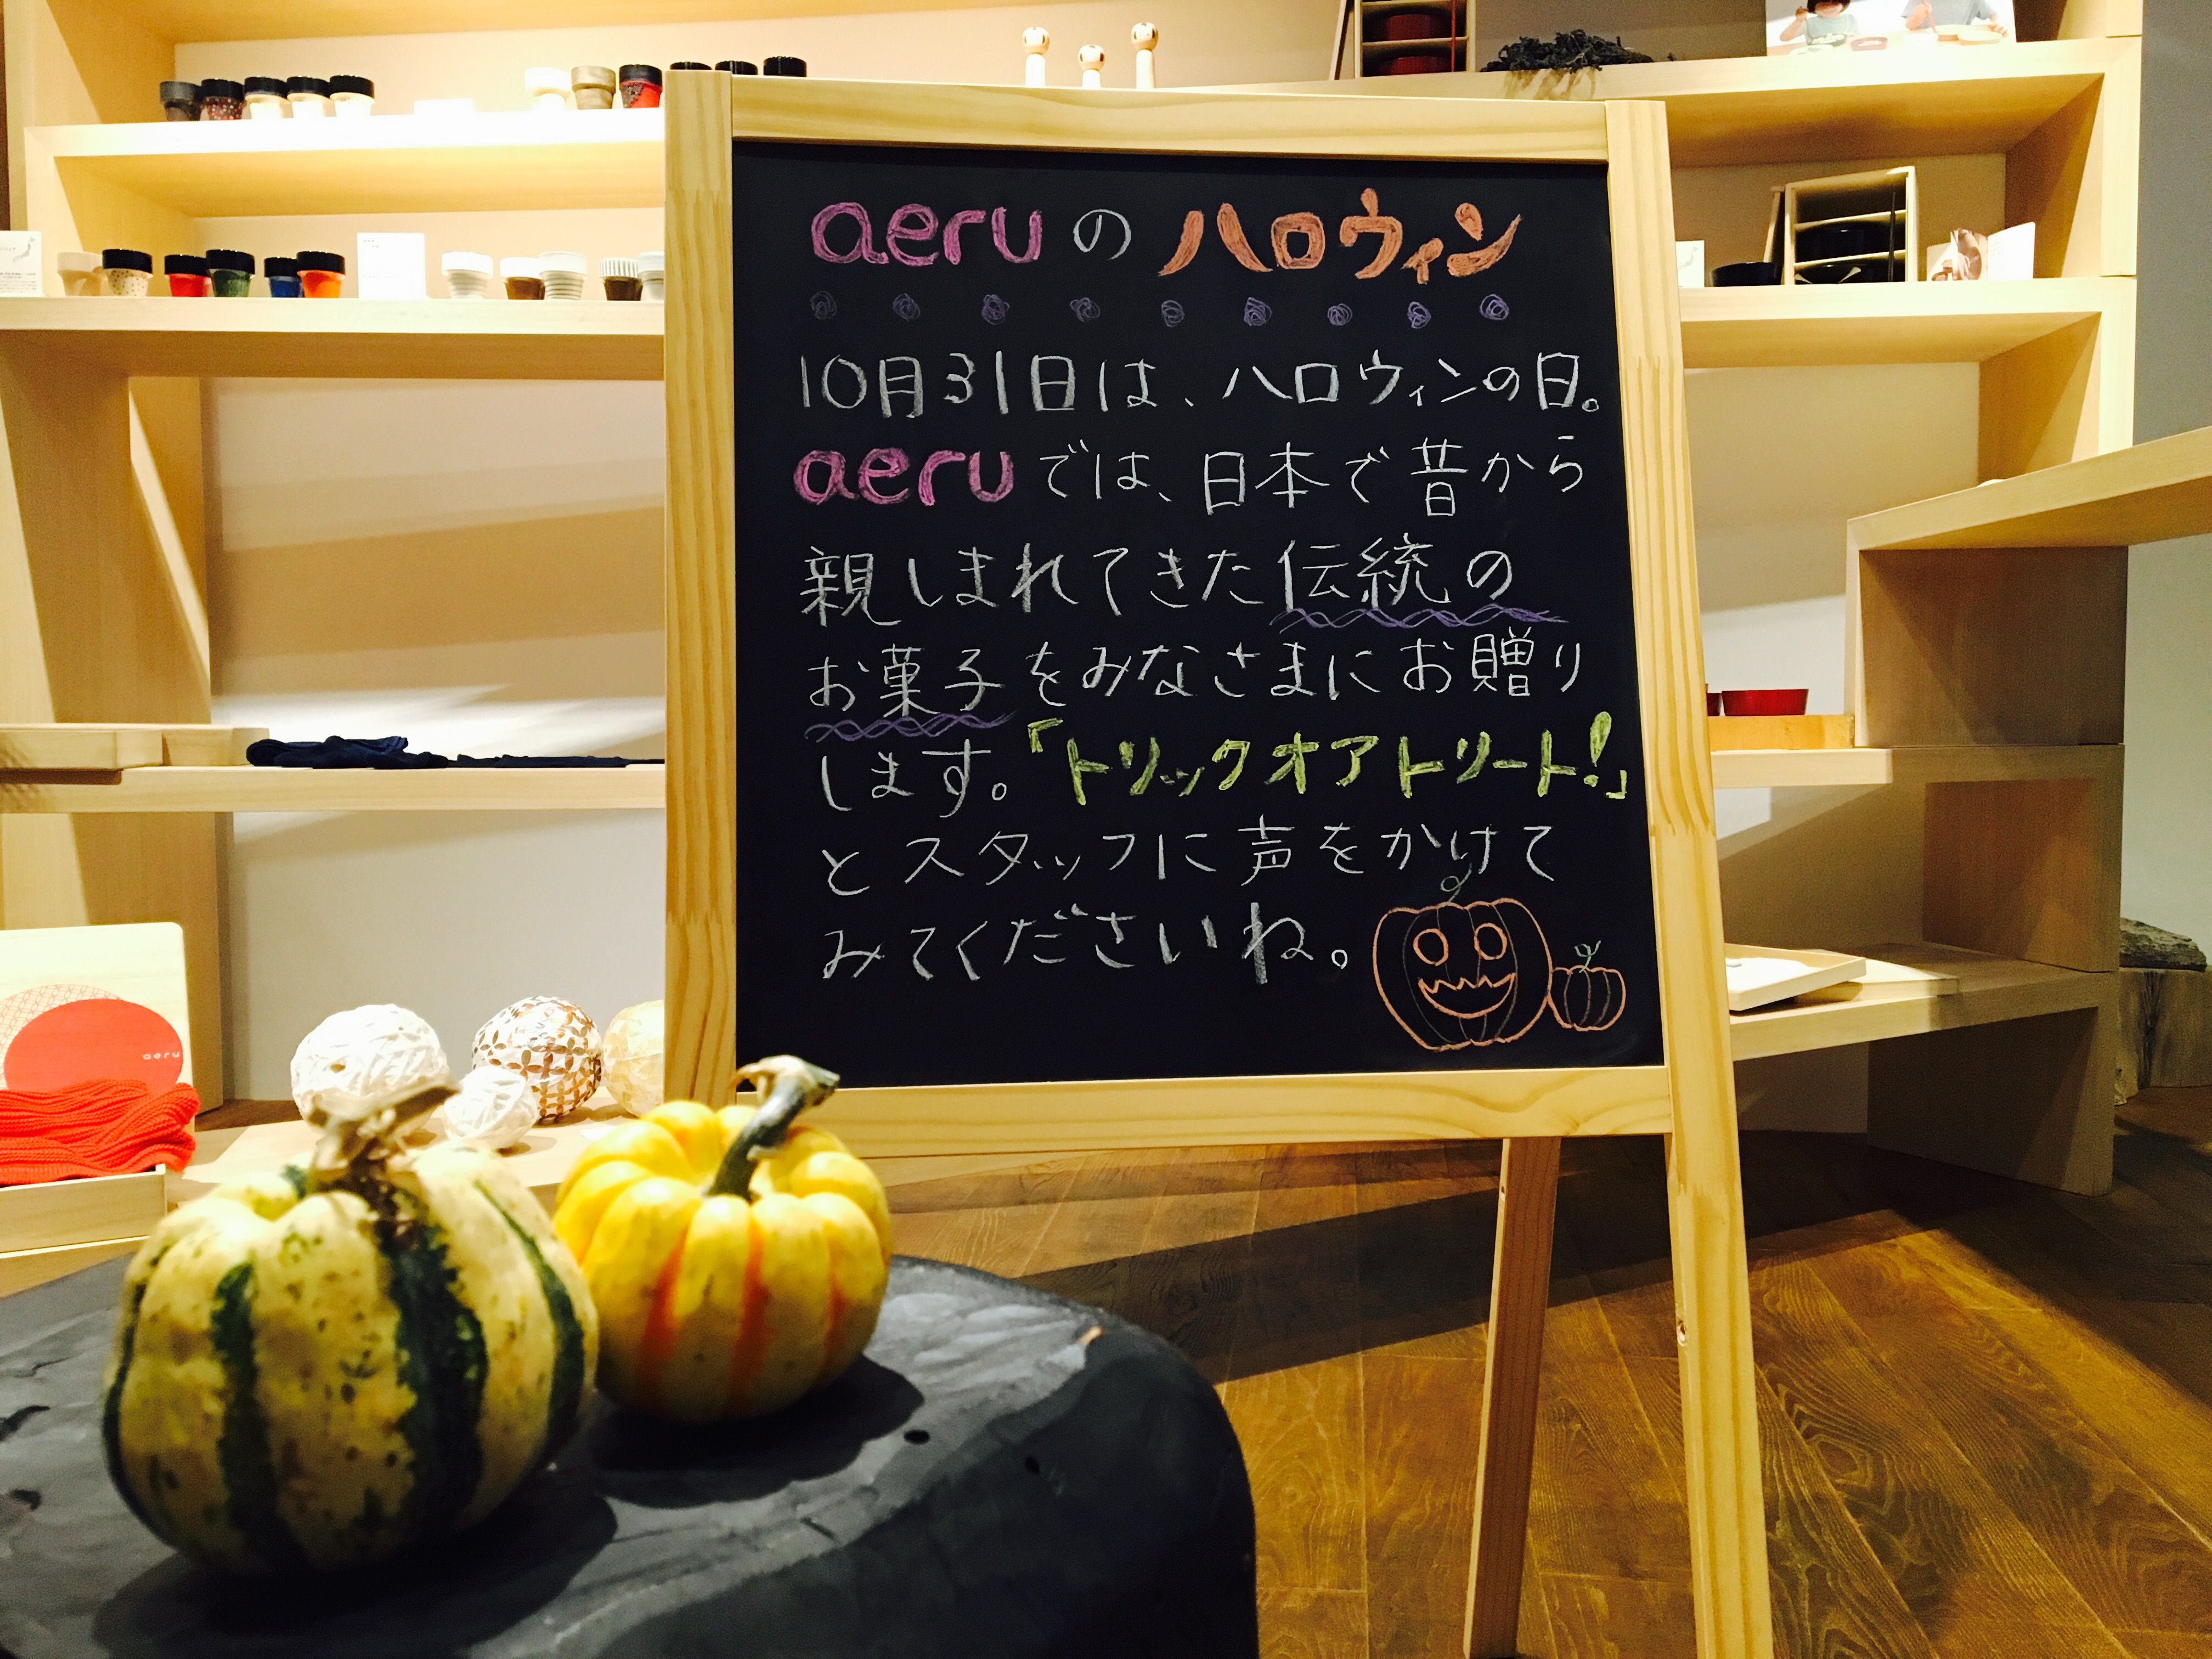 aeruのハロウィン
10月31日は、ハロウィンの日。
aeruでは、日本で昔から
親しまれてきた伝統の
お菓子をみなさまにお贈り
します。「トリックオアトリート!」
とスタッフに声をかけて
みてくださいね。
aeru